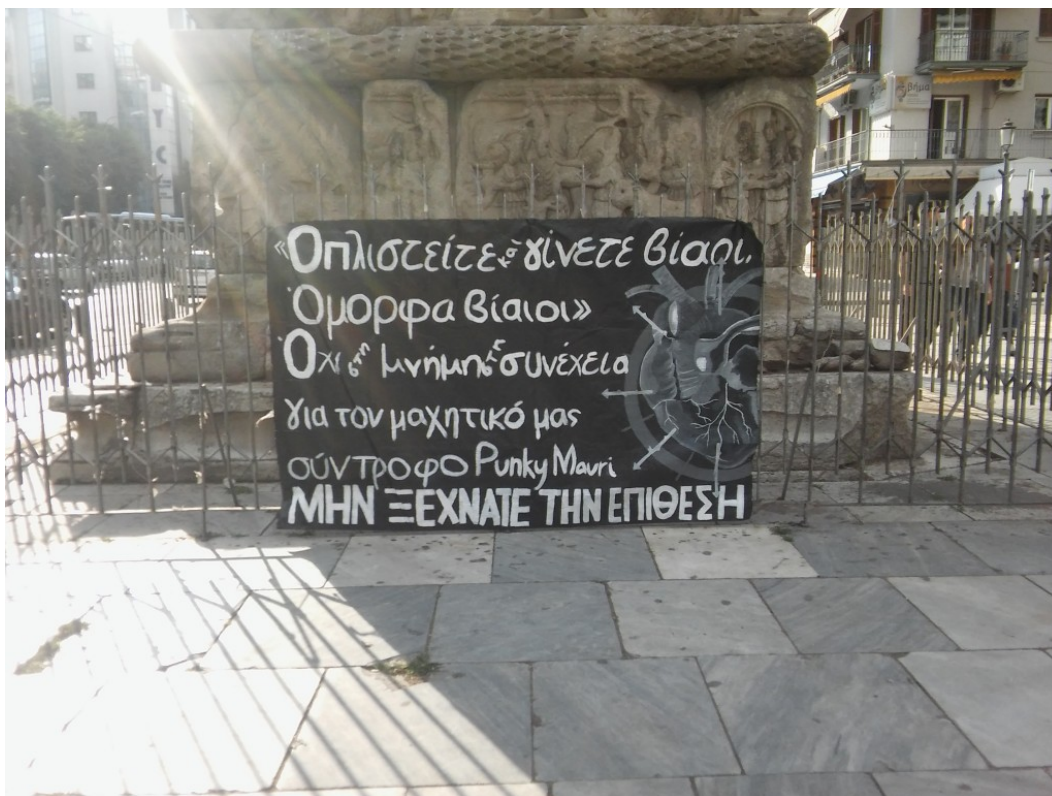 «Οπλιστείτε καὶ γίνετε βίαιοι,
Όμορφα βίαιοι»
Όχι στη μνήμη, τη συνέχεια
για τον μαχητικό μας
σύντροφο Punky Mauri
ΜΗΝ ΞΕΧΝΑΤΕ ΤΗΝ ΕΠΙΘΕΣΗ
βήμα